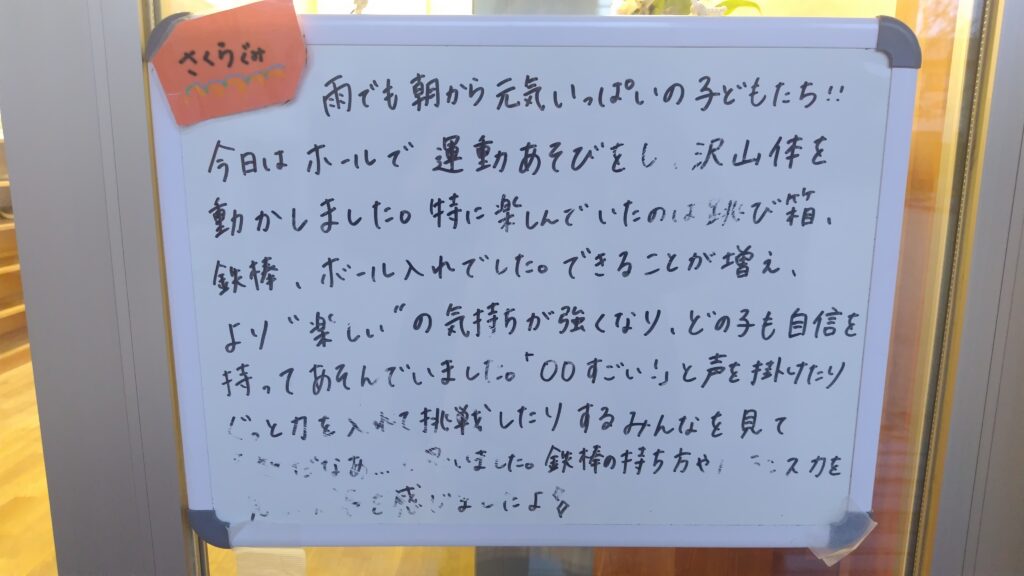 さくらぐみ
雨でも朝から元気いっぱいの子どもたち!!
今日はホールで運動あそびをし、沢山体を
動かしました。特に楽しんでいたのは跳び箱、
鉄棒、ボール入れでした。できることが増え、
より"楽しい"の気持ちが強くなり、どの子も自信を
持ってあそんでいました。「〇〇すごい!」と声を掛けたり
ぐっと力を入れて挑戦したりするみんなを見て
なあ… いました。鉄棒の持ち方や 力を
感じましたよ